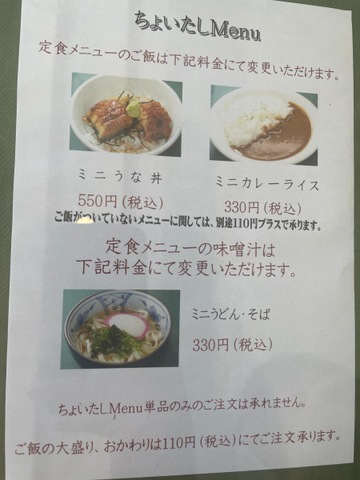 ちょいたしMenu
定食メニューのご飯は下記料金にて変更いただけます。
ミニうな丼
ミニカレーライス
550円(税込)
330円(税込)
ご飯がついていないメニューに関しては、別途110円プラスで承ります。
定食メニューの味噌汁は
下記料金にて変更いただけます。
ミニうどん・そば
330円(税込)
ちょいたしMenu単品のみのご注文は承れません。
ご飯の大盛り、おかわりは110円(税込)にてご注文承ります。